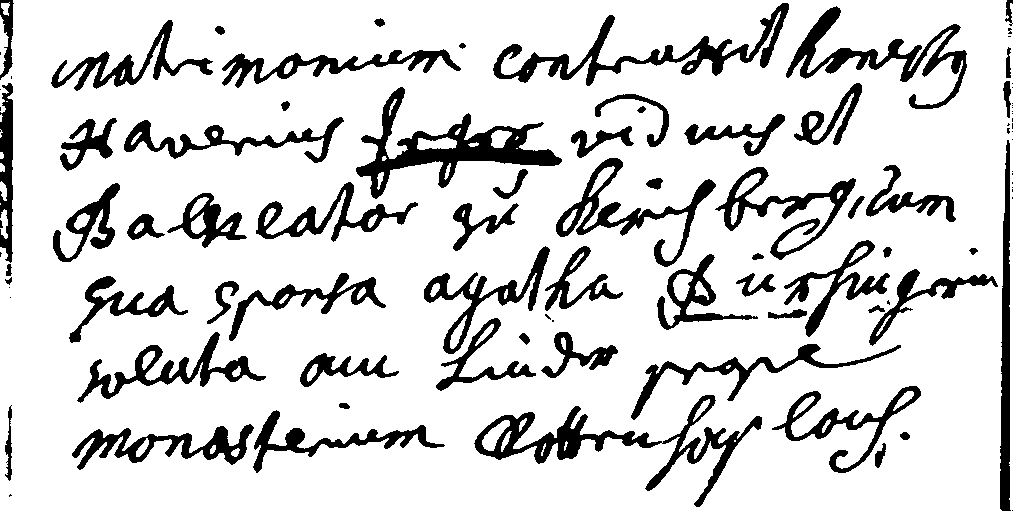 matrimonium contraxit honestus
Xaverius viduus et
Balneator zu Kirchberg, cum
sua sponsa agatha Pürsingerin
soluta am Linder prope
monasterium Rottenbuch